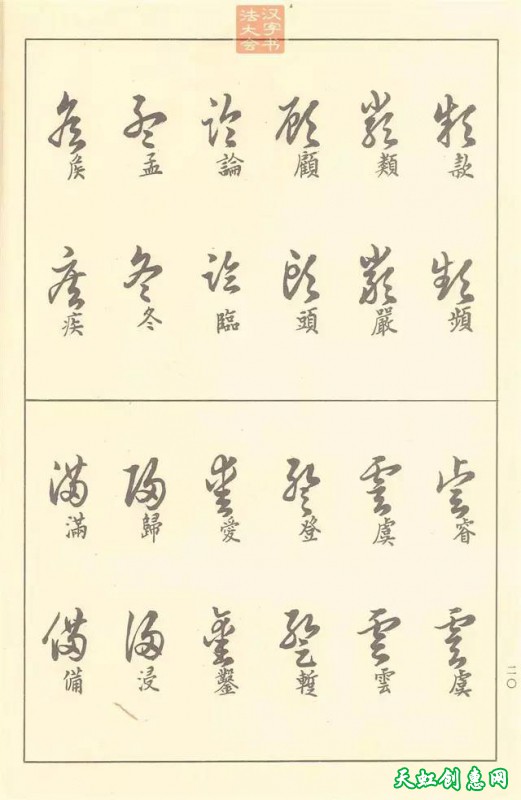 汉字书
法大会
款 頻
類 嚴
顧 頭
論 臨
孟 冬
矦 疾
睿 虞
虞 雲
登 暫
愛 鑿
歸 浸
滿 備
二〇
天虹创惠网